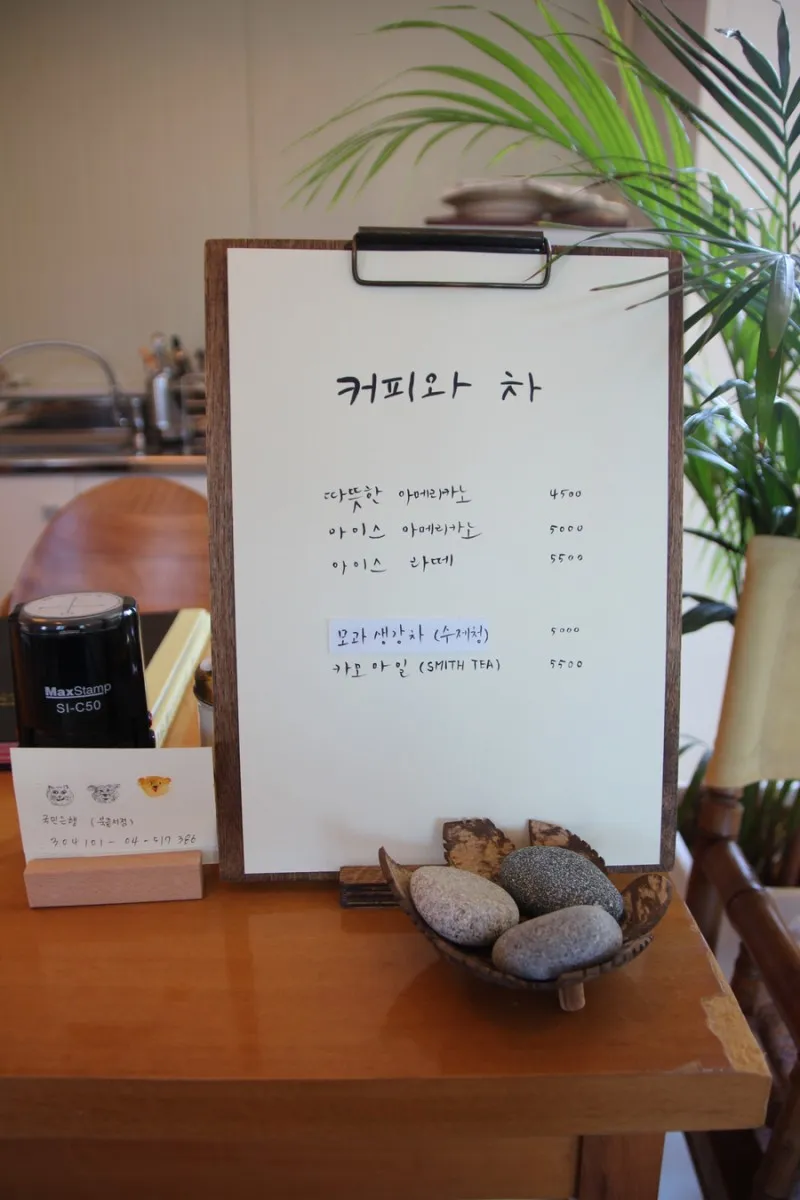 커피와 차
따뜻한 아메리카노 4500
아이스 아메리카노 5000
아이스 라떼 5500
모과생강차 (수제청) 5000
카모마일 (SMITH TEA) 5500
MaxStamp
SI-C50
국민은행
304101-04-517386